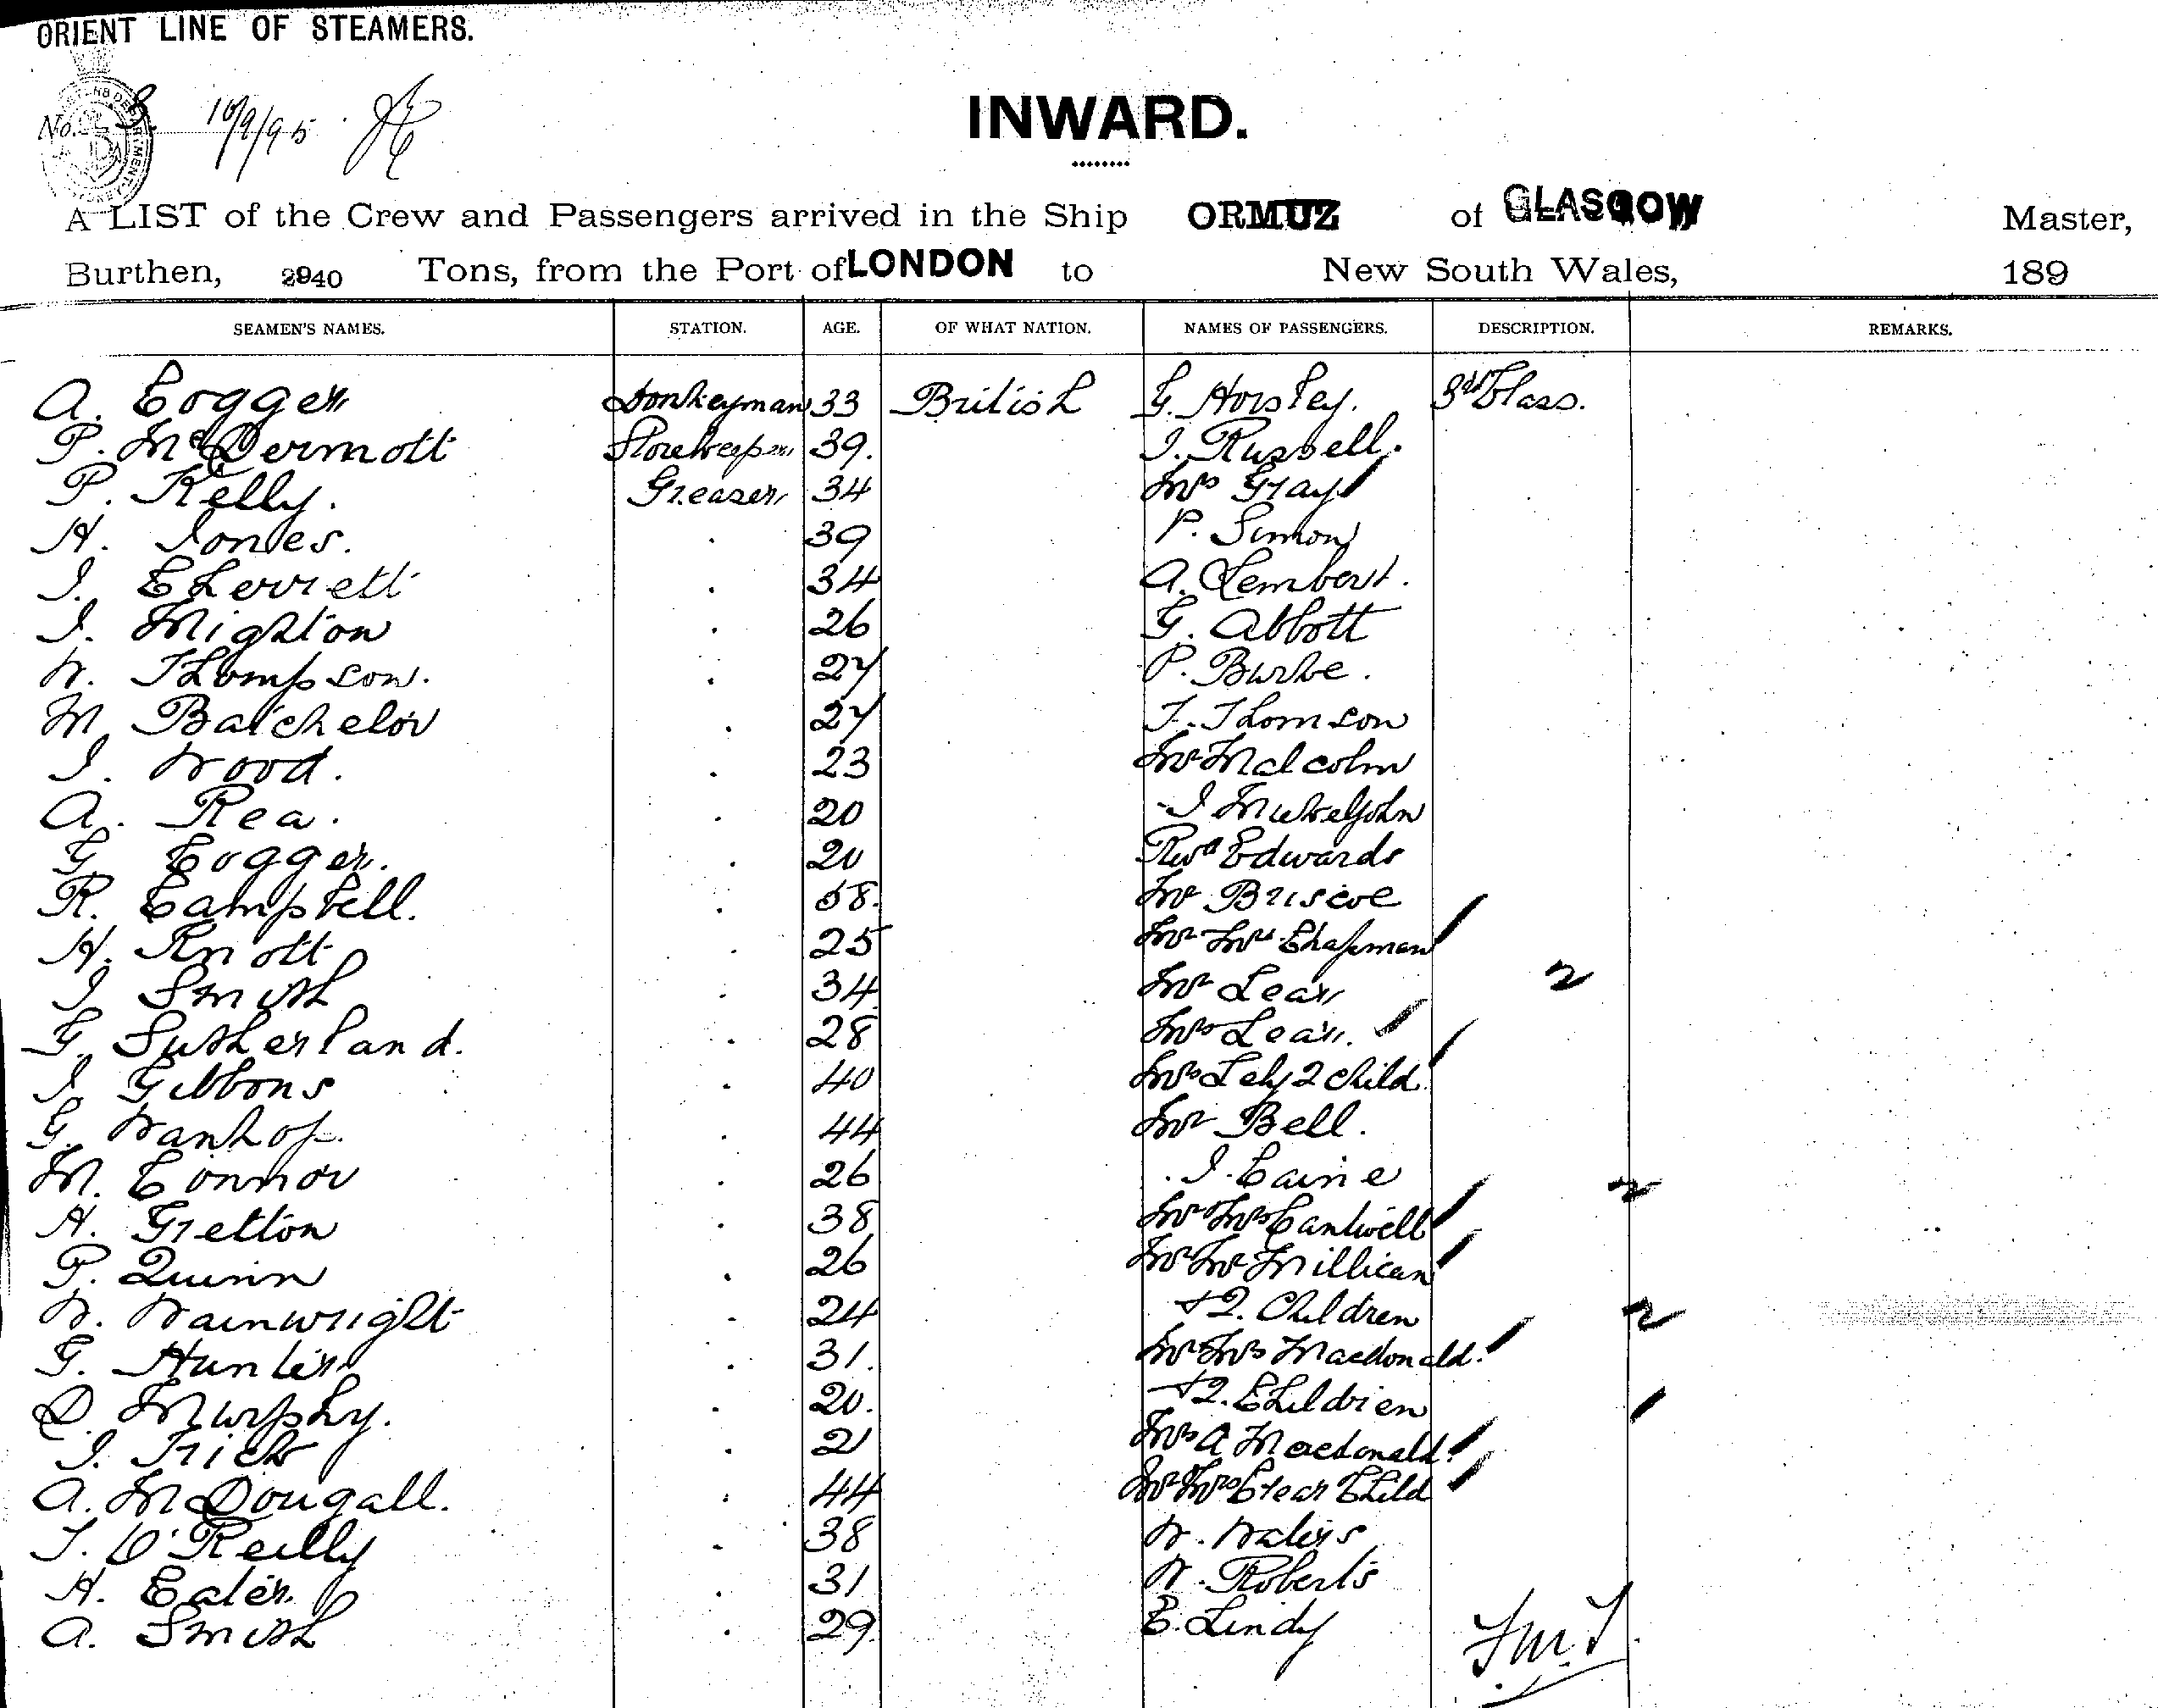 ORIENT LINE OF STEAMERS.
No. 3. 10/9/95
INWARD.
A LIST of the Crew and Passengers arrived in the Ship ORMUZ of GLASGOW Master,
Burthen, 2940 Tons, from the Port of LONDON to New South Wales, 189
SEAMEN'S NAMES. STATION. AGE. OF WHAT NATION. NAMES OF PASSENGERS. DESCRIPTION. REMARKS.
A. Cogger Donkeyman 33 British G. Horsley. 3rd Class.
P. McDermott Storekeeper 39. J. Russell.
P. Kelly. Greaser 34 Mrs Gray
H. Jones. . 39 P. Simon
J. Cherrett . 34 A. Lembert.
J. Mighton . 26 G. Abbott
W. Thompson. . 27 P. Burke.
M Batchelor . 27 F. Thomson
J. Wood. . 23 Mr Malcolm
A. Rea. . 20 J
G. Cogger. . 20 Revd Edwards
R. Campbell. . 58. Mr Briscoe
H. Knott . 25 Mr Mrs Chapman
J Smith . 34 Mr Lear 2
G. Sutherland. . 28 Mrs Lear.
J. Gibbons . 40 Mrs 2 Child
G. Wanhof. . 44 Mr Bell.
M. Connor . 26 J. Caine
H. Gretton . 38 Mr Mrs Cantwell 2
P. Quinn . 26 Mr Mr Millican
W. Wainwright . 24 + 2. Children 2
G. Hunter . 31. Mr Mrs Macdonald.
D. Murphy. . 20. + 2. Children
J. Trick . 21 Mrs A Macdonald.
A. McDougall. . 44 Mr Mrs Child
T. O'Reilly . 38 W. Waters
H. Eater. . 31 W. Roberts
A. Smith . 29. E. Lindy